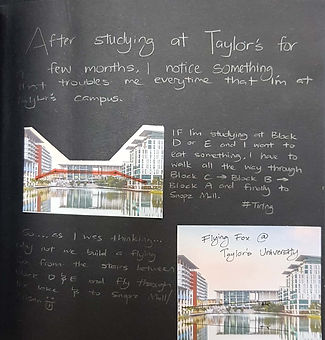 After studying at Taylor's for
few months, I notice something
troubles me everytime that I'm at
Taylor's campus.
IF I'm studying at Block
D or E and I want to
eat something, I have to
walk all the way through
Block C → Block B →
Block A and finally to
Snapz Mall.
#Tiring
So... as I was thinking...
not we build a flying
from the stairs between
D & E and fly through
the lake to Snapz Mall/
Flying Fox @
Taylor's University